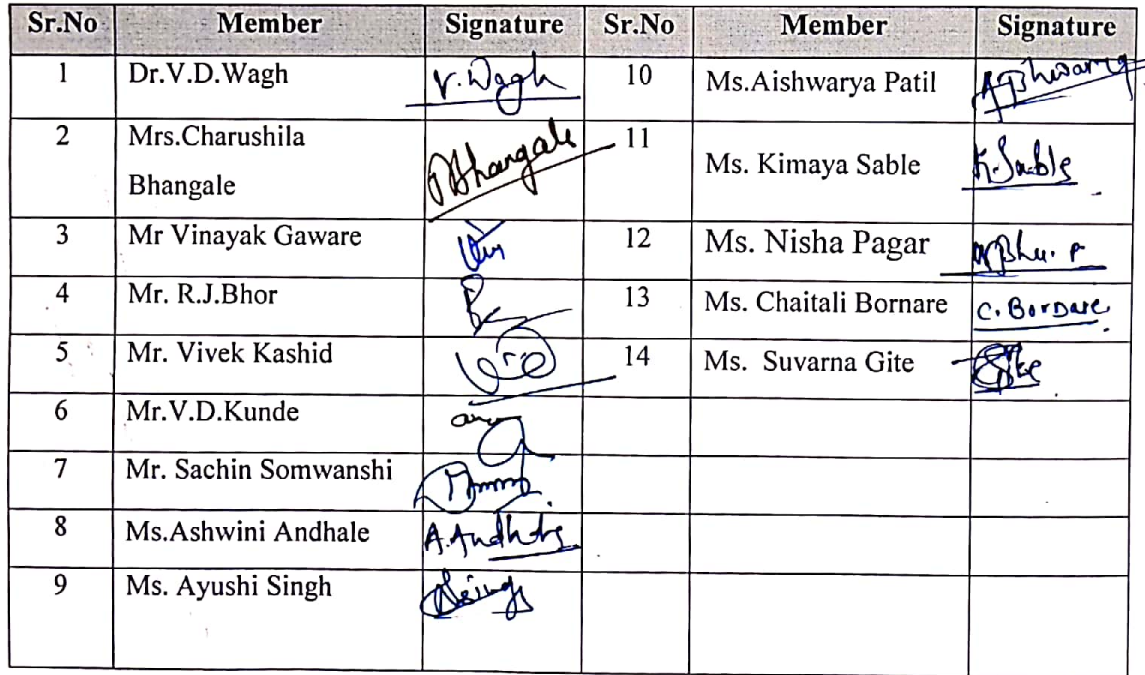 Sr.No Member Signature Sr.No Member Signature
1 Dr.V.D.Wagh V.Wagh 10 Ms.Aishwarya Patil
2 Mrs.Charushila Bhangale 11
Bhangale Ms. Kimaya Sable K.Sable
3 Mr Vinayak Gaware 12 Ms. Nisha Pagar
4 Mr. R.J.Bhor 13 Ms. Chaitali Bornare C. Bornare
5 Mr. Vivek Kashid 14 Ms. Suvarna Gite
6 Mr.V.D.Kunde
7 Mr. Sachin Somwanshi
8 Ms.Ashwini Andhale
9 Ms. Ayushi Singh